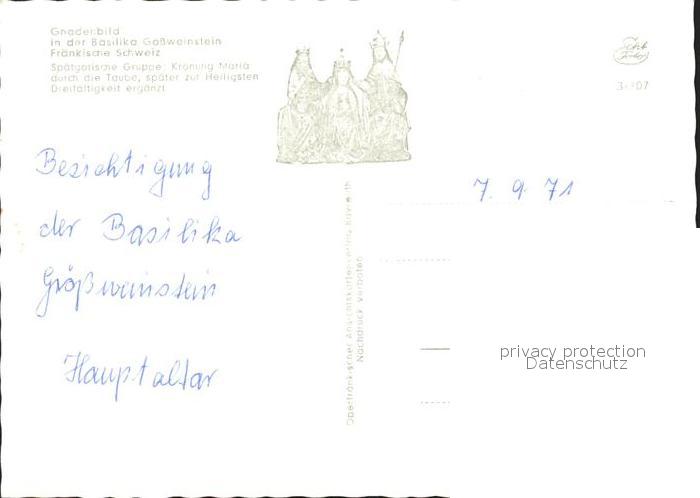 Gnadenbild
in der Basilika Gößweinstein
Fränkische Schweiz
Spätgotische Gruppe: Krönung Mariä
durch die Taube, später zur Heiligsten
Dreifaltigkeit ergänzt
Echt Foto
Besichtigung
der Basilika
Größweinstein
Hauptaltar
Oberfränkischer Ansichtskartenverlag Bayreuth
Nachdruck verboten
7. 9. 71
privacy protection
Datenschutz